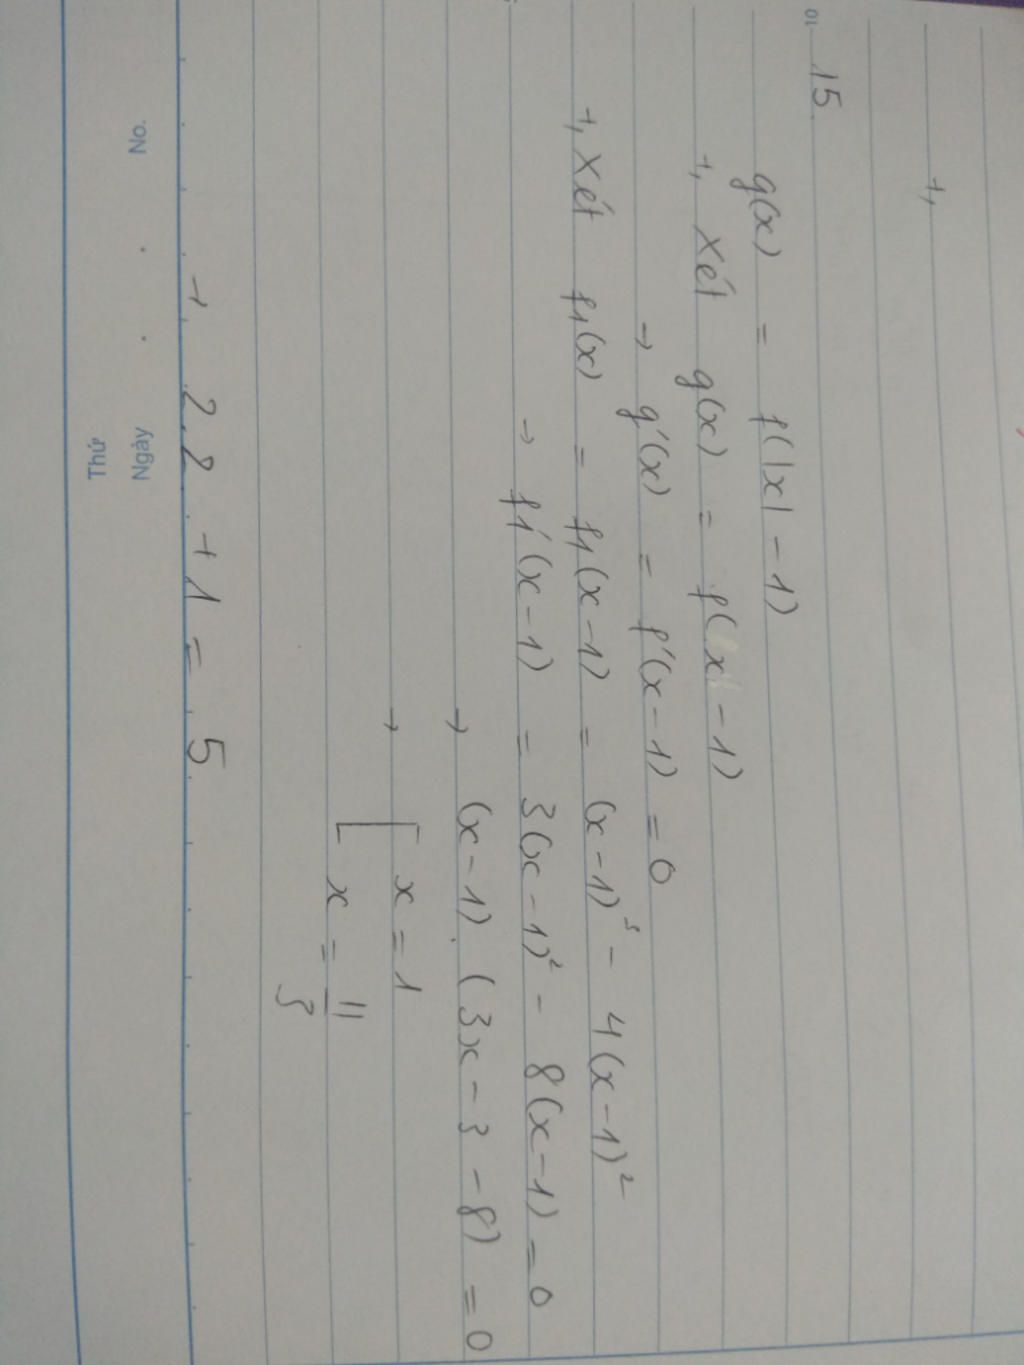 01
15.
+,
g(x) = f(|x| - 1)
+, Xét g(x) = f(x - 1)
→ g'(x) = f'(x - 1) = 0
+, Xét f1(x) = f1(x - 1) = (x - 1)³ - 4(x - 1)²
→ f1'(x - 1) = 3(x - 1)² - 8(x - 1) = 0
→ (x - 1). (3x - 3 - 8) = 0
→ [ x = 1
x = 11/3
+, 2.2 + 1 = 5
Thứ
Ngày . . No.